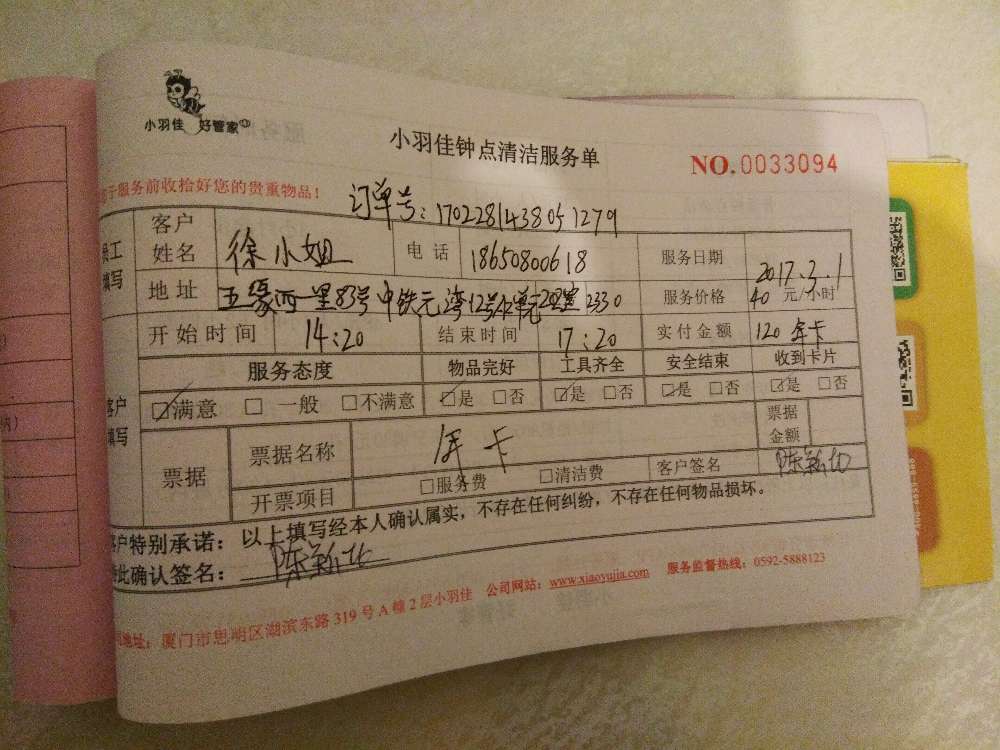 小羽佳 好管家
小羽佳钟点清洁服务单
NO.0033094
于服务前收拾好您的贵重物品！
订单号：1702281438051279
员工填写
客户姓名 徐小姐 电话 18650800618 服务日期 2017.3.1
地址 五缘西一里83号中铁元湾12号 2330 服务价格 40 元/小时
开始时间 14:20 结束时间 17:20 实付金额 120 年卡
客户填写
服务态度 物品完好 工具齐全 安全结束 收到卡片
☑满意 □一般 □不满意 ☑是 □否 ☑是 □否 ☑是 □否 ☑是 □否
票据 票据名称 年卡 票据金额
开票项目 □服务费 □清洁费 客户签名
客户特别承诺：以上填写经本人确认属实，不存在任何纠纷，不存在任何物品损坏。
特此确认签名：
地址：厦门市思明区湖滨东路319号A幢2层小羽佳 公司网站：www.xiaoyujia.com 服务监督热线：0592-5888123